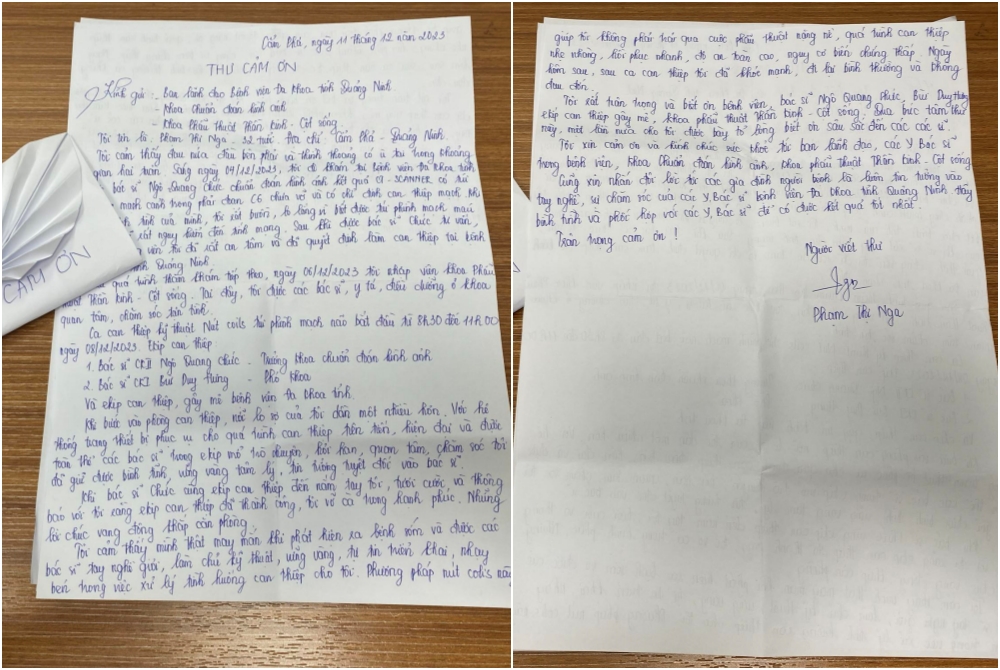 Cẩm Phả, ngày 11 tháng 12 năm 2023
THƯ CẢM ƠN
Kính gửi: - Ban lãnh đạo Bệnh viện Đa khoa tỉnh Quảng Ninh
- Khoa Chuẩn đoán hình ảnh
- Khoa Phẫu Thuật Thần kinh - Cột sống.
Tôi tên là: Phạm Thị Nga - 32 tuổi. Địa chỉ: Cẩm Phả - Quảng Ninh.
Tôi cảm thấy đau nửa đầu bên phải và thỉnh thoảng có ù tai trong khoảng
gian hai tuần. Sáng ngày 04/12/2023, tôi đi khám tại bệnh viện Đa khoa tỉnh
bác sĩ Ngô Quang Chức chuẩn đoán hình ảnh kết quả CT-SCANNER có túi
mạch cảnh trong phải đoạn C6 chưa vỡ và có chỉ định can thiệp mạch. Khi
bệnh tình của mình, tôi rất buồn, lo lắng vì biết được túi phình mạch máu
rất nguy hiểm đến tính mạng. Sau khi được bác sĩ Chức tư vấn,
viên tôi đã rất an tâm và đã quyết định làm can thiệp tại bệnh
tỉnh Quảng Ninh.
quá trình thăm khám tiếp theo, ngày 06/12/2023 tôi nhập viện khoa Phẫu
thuật Thần kinh - Cột sống. Tại đây, tôi được các bác sĩ, y tá, điều dưỡng ở khoa
quan tâm, chăm sóc tận tình.
Ca can thiệp kỹ thuật Nút coils túi phình mạch não bắt đầu từ 8h30 đến 11h00
ngày 08/12/2023. Ekip can thiệp
1. Bác sĩ CKII Ngô Quang Chức - Trưởng khoa chuẩn đoán hình ảnh
2. Bác sĩ CKI Bùi Duy Hưng - Phó Khoa
Và ekip can thiệp, gây mê bệnh viện Đa khoa tỉnh.
Khi bước vào phòng can thiệp, nỗi lo sợ của tôi dần một nhiều hơn. Với hệ
thống trang thiết bị phục vụ cho quá trình can thiệp tiên tiến, hiện đại và được
toàn thể các bác sĩ trong ekip mổ trò chuyện, hỏi han, quan tâm, chăm sóc tôi
đã giữ được bình tĩnh, vững vàng tâm lý, tin tưởng tuyệt đối vào bác sĩ.
Khi bác sĩ Chức cùng ekip can thiệp đến nắm tay tôi, tươi cười và thông
báo với tôi rằng ekip can thiệp đã thành công, tôi vỡ oà trong hạnh phúc. Những
lời chúc vang động khắp căn phòng.
Tôi cảm thấy mình thật may mắn khi phát hiện ra bệnh sớm và được các
bác sĩ tay nghề giỏi, làm chủ kỹ thuật, vững vàng, tự tin triển khai, nhạy
bén trong việc xử lý tình huống can thiệp cho tôi. Phương pháp nút coils này
giúp tôi không phải trải qua cuộc phẫu thuật nặng nề, quá trình can thiệp
nhẹ nhàng, hồi phục nhanh, độ an toàn cao, nguy cơ biến chứng thấp. Ngày
hôm sau, sau ca can thiệp tôi đã khỏe mạnh, đi lại bình thường và không
đau đớn.
Tôi rất trân trọng và biết ơn bệnh viện, bác sĩ Ngô Quang Chức, Bùi Duy Hưng
ekip can thiệp gây mê, khoa phẫu thuật Thần kinh - Cột sống. Qua bức tâm thư
này, một lần nữa cho tôi được bày tỏ lòng biết ơn sâu sắc đến các bác sĩ.
Tôi xin cảm ơn và kính chúc sức khỏe tới ban lãnh đạo, các Y Bác sĩ
trong bệnh viện, khoa Chuẩn đoán hình ảnh, khoa phẫu thuật Thần kinh - Cột sống
Cũng xin nhắn đôi lời tới các gia đình người bệnh là luôn tin tưởng vào
tay nghề, sự chăm sóc của các Y, Bác sĩ bệnh viện Đa khoa tỉnh Quảng Ninh. Hãy
bình tĩnh và phối hợp với các Y, Bác sĩ để có được kết quả tốt nhất.
Trân trọng cảm ơn!
Người viết thư
Nga
Phạm Thị Nga
CẢM ƠN